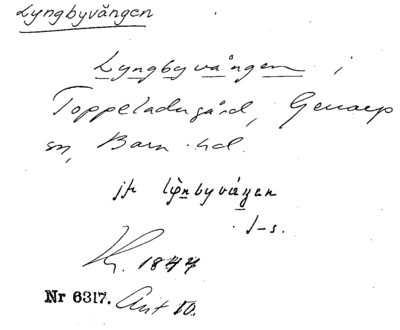 Lyngbyvången
Lyngbyvången i
Toppeladugård, Genarp
sn, Bara hd.
jfr lyngbyvången
f-s.
K. 1844
Nr 6317. Ant 10.